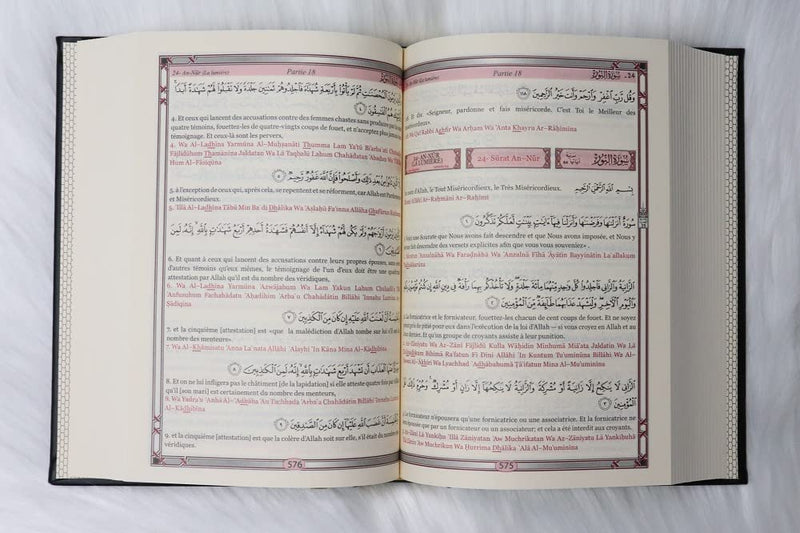 24.
Partie 18
24- An-Nûr (La lumière)
وَقُل رَّبِّ ٱغْفِرْ وَٱرْحَمْ وَأَنتَ خَيْرُ ٱلرَّٰحِمِينَ ١١٨
Et dis «Seigneur, pardonne et fais miséricorde. C'est Toi le Meilleur des
Wa Qul Rabbi Aghfir Wa Arĥam Wa 'Anta Khayru Ar-Rāĥimīna
سُورَةُ النُّورِ
24- Sûrat An-Nûr
24- AN-NUR
(LA LUMIÈRE)
بِسْمِ ٱللَّهِ ٱلرَّحْمَٰنِ ٱلرَّحِيمِ
d'Allah, le Tout Miséricordieux, le Très Miséricordieux.
Allāhi Ar-Raĥmāni Ar-Raĥīmi
سُورَةٌ أَنزَلْنَٰهَا وَفَرَضْنَٰهَا وَأَنزَلْنَا فِيهَآ ءَايَٰتٍۭ بَيِّنَٰتٍ لَّعَلَّكُمْ تَذَكَّرُونَ ١
une Sourate que Nous avons fait descendre et que Nous avons imposée, et Nous y
avons fait descendre des versets explicites afin que vous vous souveniez».
'Anzalnāhā Wa Farađnāhā Wa 'Anzalnā Fīhā 'Āyātin Bayyinātin La`allakum
ٱلزَّانِيَةُ وَٱلزَّانِى فَٱجْلِدُوا۟ كُلَّ وَٰحِدٍ مِّنْهُمَا مِا۟ئَةَ جَلْدَةٍ وَلَا تَأْخُذْكُم بِهِمَا رَأْفَةٌ فِى دِينِ ٱللَّهِ إِن كُنتُمْ تُؤْمِنُونَ
بِٱللَّهِ وَٱلْيَوْمِ ٱلْءَاخِرِ وَلْيَشْهَدْ عَذَابَهُمَا طَآئِفَةٌ مِّنَ ٱلْمُؤْمِنِينَ ٢
La fornicatrice et le fornicateur, fouettez-les chacun de cent coups de fouet. Et ne soyez
point pris de pitié pour eux dans l'exécution de la loi d'Allah — si vous croyez en Allah et
Dernier. Et qu'un groupe de croyants assiste à leur punition.
Az-Zāniyatu Wa Az-Zānī Fājlidū Kulla Wāĥidin Minhumā Miā'ata Jaldatin Wa Lā
Bihimā Ra'fatun Fī Dīni Allāhi 'In Kuntum Tu'uminūna Billāhi Wa Al-
Al-'Ākhiri Wa Lyachhad `Adhābahumā Ţā'ifatun Mina Al-Mu'uminīna
ٱلزَّانِى لَا يَنكِحُ إِلَّا زَانِيَةً أَوْ مُشْرِكَةً وَٱلزَّانِيَةُ لَا يَنكِحُهَآ إِلَّا زَانٍ أَوْ مُشْرِكٌ وَحُرِّمَ ذَٰلِكَ عَلَى
ٱلْمُؤْمِنِينَ ٣
Le fornicateur n'épousera qu'une fornicatrice ou une associatrice. Et la fornicatrice ne
épousée que par un fornicateur ou un associateur; et cela a été interdit aux croyants.
Az-Zānī Lā Yankiĥu 'Illā Zāniyatan 'Aw Muchrikatan Wa Az-Zāniyatu Lā Yankiĥuhā
Zānin 'Aw Muchrikun Wa Ĥurrima Dhālika `Alá Al-Mu'uminīna
575
24- An-Nûr (La lumière)
Partie 18
وَٱلَّذِينَ يَرْمُونَ ٱلْمُحْصَنَٰتِ ثُمَّ لَمْ يَأْتُوا۟ بِأَرْبَعَةِ شُهَدَآءَ فَٱجْلِدُوهُمْ ثَمَٰنِينَ جَلْدَةً وَلَا تَقْبَلُوا۟ لَهُمْ شَهَٰدَةً أَبَدًا
وَأُو۟لَٰٓئِكَ هُمُ ٱلْفَٰسِقُونَ ٤
4. Et ceux qui lancent des accusations contre des femmes chastes sans produire par la suite
quatre témoins, fouettez-les de quatre-vingts coups de fouet, et n'acceptez plus jamais leur
témoignage. Et ceux-là sont les pervers,
4. Wa Al-Ladhīna Yarmūna Al-Muĥşanāti Thumma Lam Ya'tū Bi'arba`ati Chuhadā'a
Fājlidūhum Thamānīna Jaldatan Wa Lā Taqbalū Lahum Chahādatan 'Abadāan Wa 'Ūlā'ika
Hum Al-Fāsiqūna
إِلَّا ٱلَّذِينَ تَابُوا۟ مِنۢ بَعْدِ ذَٰلِكَ وَأَصْلَحُوا۟ فَإِنَّ ٱللَّهَ غَفُورٌ رَّحِيمٌ ٥
5. à l'exception de ceux qui, après cela, se repentent et se réforment, car Allah est Pardonneur
et Miséricordieux.
5. 'Illā Al-Ladhīna Tābū Min Ba`di Dhālika Wa 'Aşlaĥū Fa'inna Allāha Ghafūrun Raĥīmun
وَٱلَّذِينَ يَرْمُونَ أَزْوَٰجَهُمْ وَلَمْ يَكُن لَّهُمْ شُهَدَآءُ إِلَّآ أَنفُسُهُمْ فَشَهَٰدَةُ أَحَدِهِمْ أَرْبَعُ شَهَٰدَٰتٍۭ بِٱللَّهِ إِنَّهُۥ لَمِنَ
ٱلصَّٰدِقِينَ ٦
6. Et quant à ceux qui lancent des accusations contre leurs propres épouses, sans avoir
d'autres témoins qu'eux mêmes, le témoignage de l'un d'eux doit être une quadruple
attestation par Allah qu'il est du nombre des véridiques,
6. Wa Al-Ladhīna Yarmūna 'Azwājahum Wa Lam Yakun Lahum Chuhadā'u 'Illā
'Anfusuhum Fachahādatu 'Aĥadihim 'Arba`u Chahādātin Billāhi 'Innahu Lamina Aş-
Şādiqīna
وَٱلْخَٰمِسَةُ أَنَّ لَعْنَتَ ٱللَّهِ عَلَيْهِ إِن كَانَ مِنَ ٱلْكَٰذِبِينَ ٧
7. et la cinquième [attestation] est «que la malédiction d'Allah tombe sur lui s'il est du
nombre des menteurs».
7. Wa Al-Khāmisatu 'Anna La`nata Allāhi `Alayhi 'In Kāna Mina Al-Kādhibīna
وَيَدْرَؤُا۟ عَنْهَا ٱلْعَذَابَ أَن تَشْهَدَ أَرْبَعَ شَهَٰدَٰتٍۭ بِٱللَّهِ إِنَّهُۥ لَمِنَ ٱلْكَٰذِبِينَ ٨
8. Et on ne lui infligera pas le châtiment [de la lapidation] si elle atteste quatre fois par Allah
qu'il [son mari] est certainement du nombre des menteurs,
8. Wa Yadra'u `Anhā Al-`Adhāba 'An Tachhada 'Arba`a Chahādātin Billāhi 'Innahu Lamina
Al-Kādhibīna
وَٱلْخَٰمِسَةَ أَنَّ غَضَبَ ٱللَّهِ عَلَيْهَآ إِن كَانَ مِنَ ٱلصَّٰدِقِينَ ٩
9. et la cinquième [attestation] est que la colère d'Allah soit sur elle, s'il était du nombre des
véridiques.
576